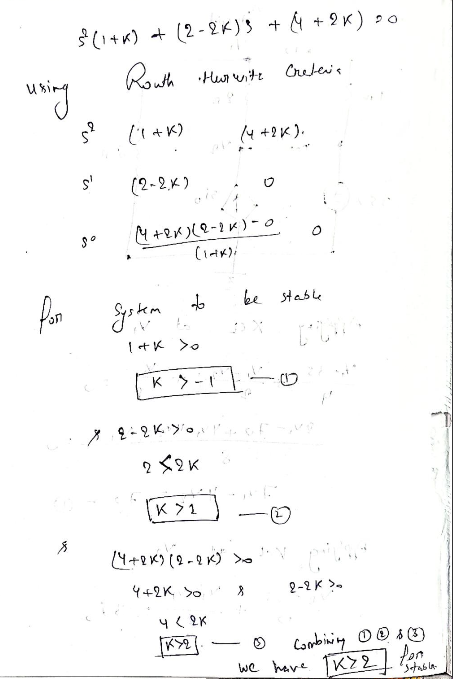 s²(1+K) + (2-2K)s + (4+2K) = 0
using Routh Hurwitz Creteria
s² (1+K) (4+2K).
s¹ (2-2K) 0
s⁰ (4+2K)(2-2K)-0 0
(1+K)
for system to be stable
1+K >0
K > -1 — ①
& 2-2K >0
2 < 2K
K > 1 — ②
& (4+2K)(2-2K) >0
4+2K >0 & 2-2K >0
4 < 2K
K>2 — ③ combining ① ② & ③
we have K>2 for stable